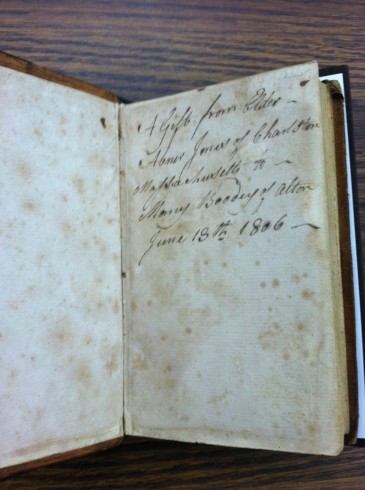 A Gift from Elder –
Abner Jones of Charlston
Massachusetts to –
Mary Boodey of Alton
June 13th 1806 –